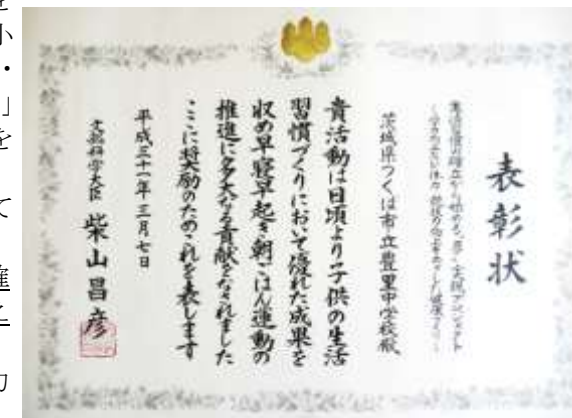 表彰状
茨城県つくば市立豊里中学校殿
貴活動は日頃より子供の生活
習慣づくりにおいて優れた成果を
収め早寝早起き朝ごはん運動の
推進に多大なる貢献をなされました
ここに奨励のためこれを表します
平成三十一年三月七日
文部科学大臣 柴山昌彦